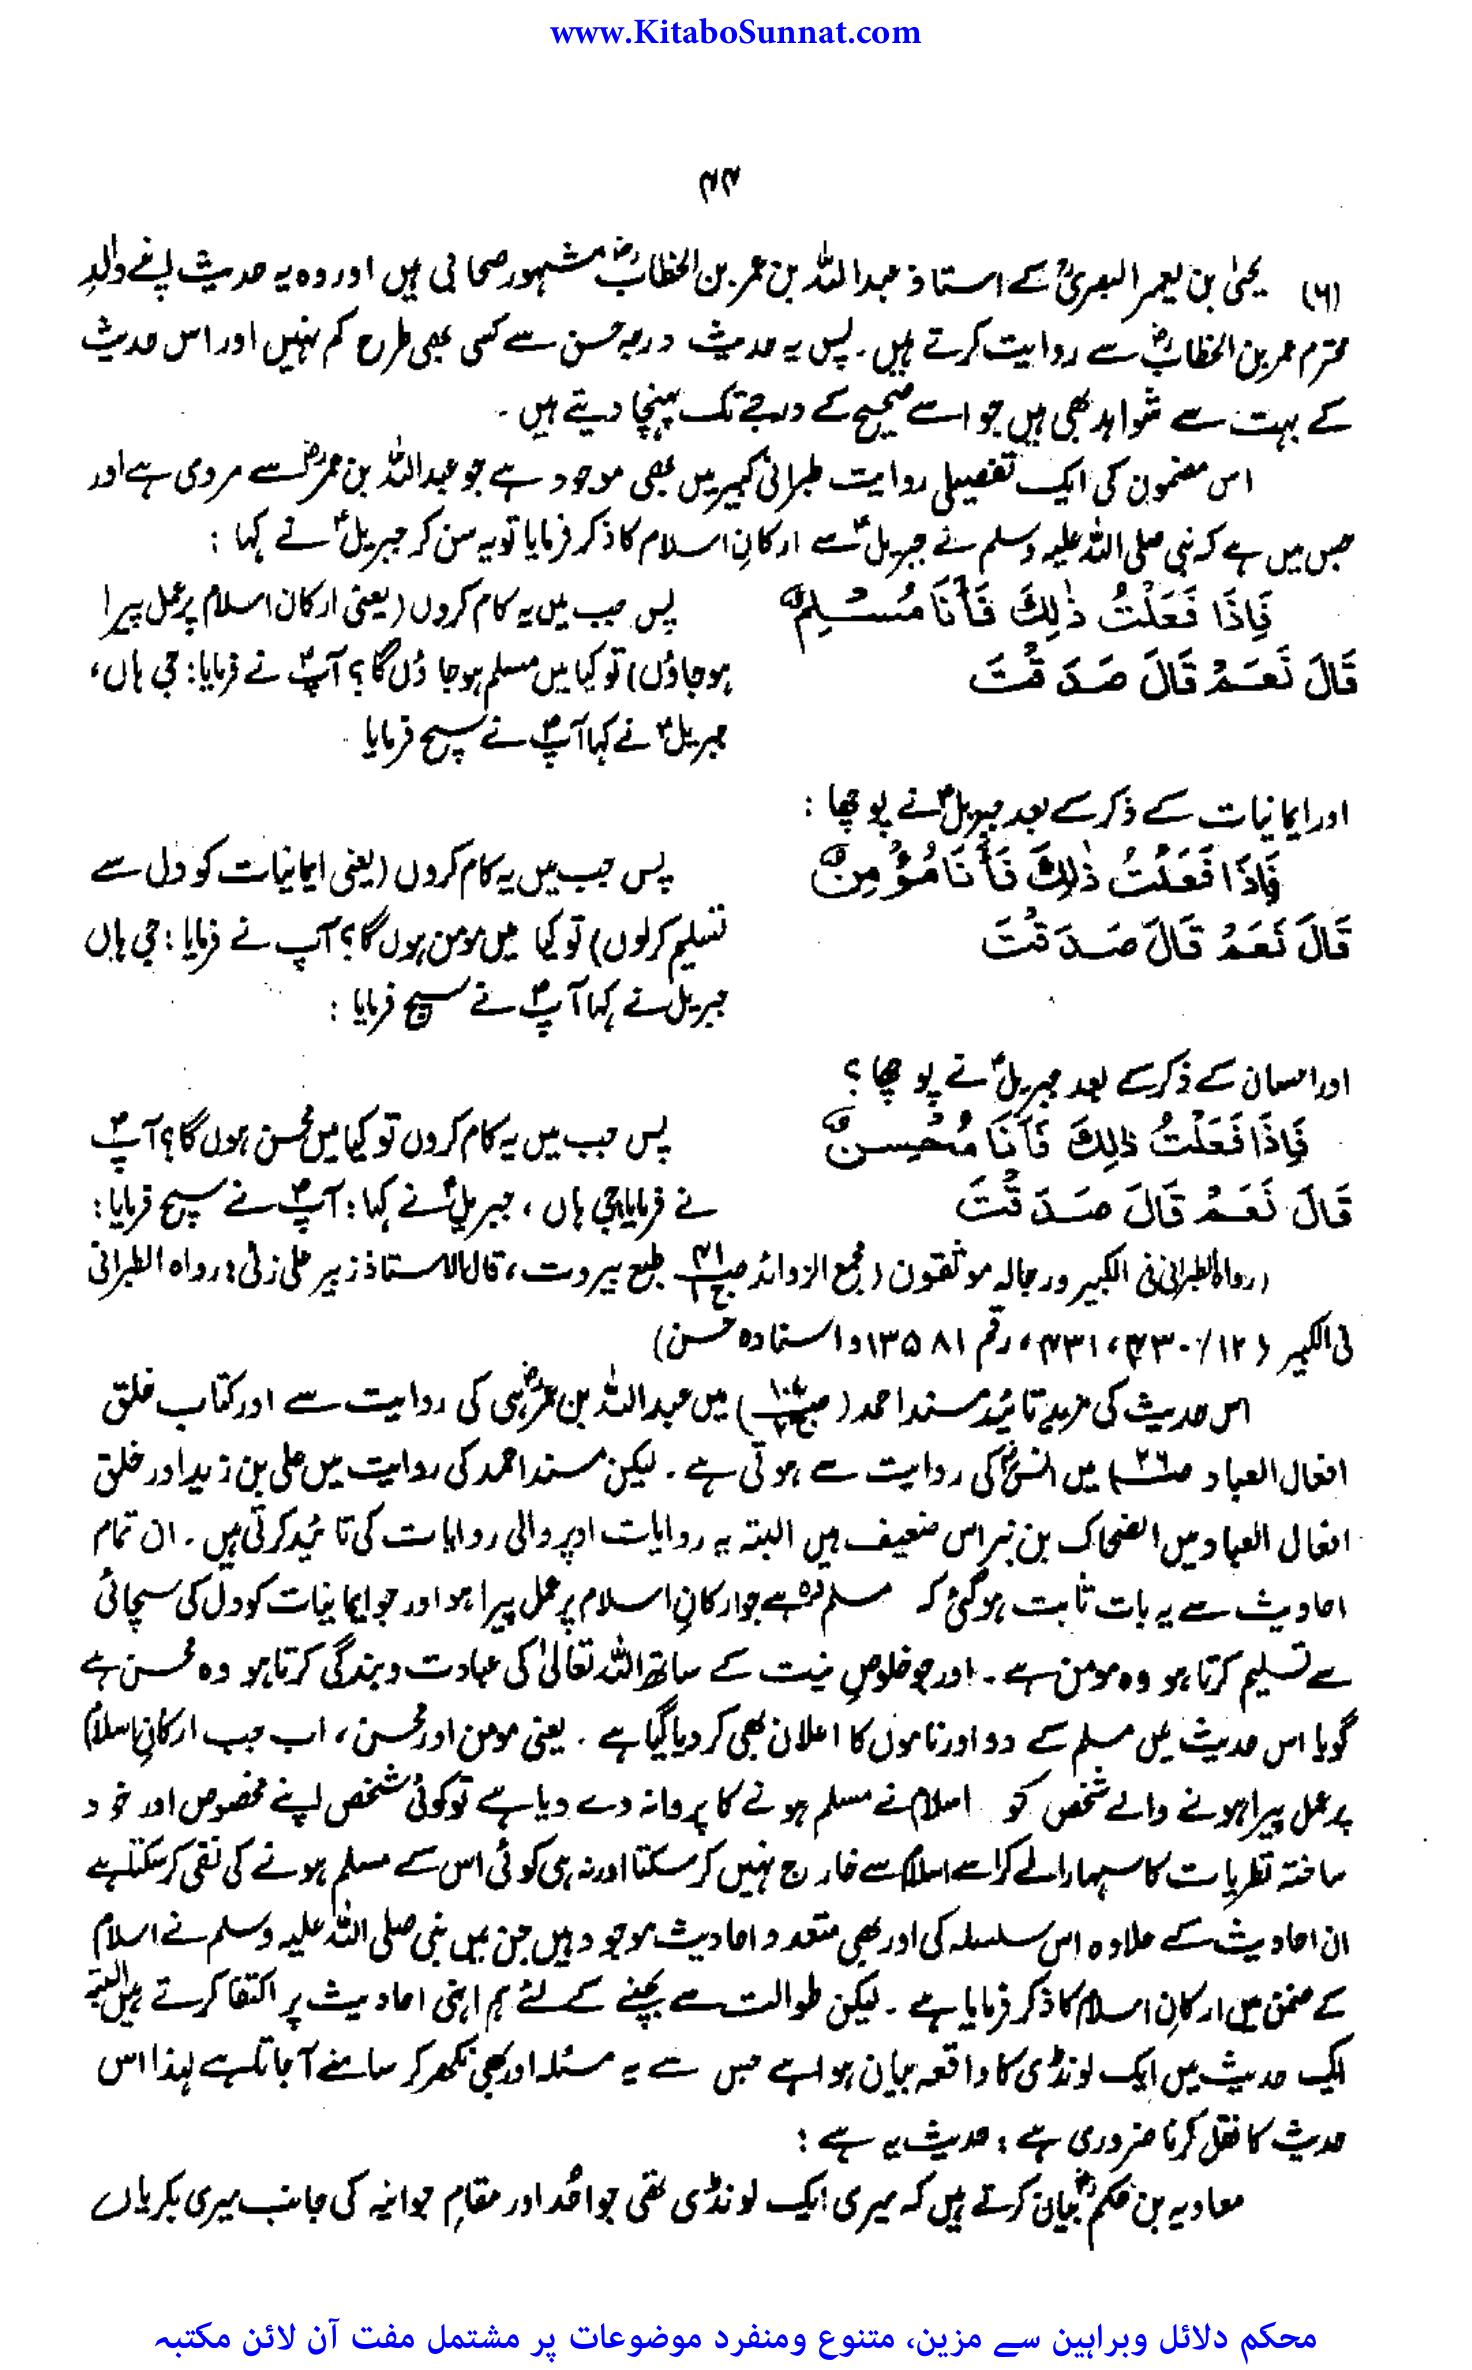 www.KitaboSunnat.com
۴۴
(۶) یحییٰ بن یعمر البصریؒ کے استاذ عبداللہ بن عمر بن الخطابؓ مشہور صحابی ہیں اور وہ یہ حدیث اپنے والدِ
محترم عمر بن الخطابؓ سے روایت کرتے ہیں۔ پس یہ حدیث درجہ حسن سے کسی بھی طرح کم نہیں اور اس حدیث
کے بہت سے شواہد بھی ہیں جو اسے صحیح کے درجے تک پہنچا دیتے ہیں۔
اس مضمون کی ایک تفصیلی روایت طبرانی کبیر میں بھی موجود ہے جو عبداللہ بن عمرؓ سے مروی ہے اور
جس میں ہے کہ نبی صلی اللہ علیہ وسلم نے جبریلؑ سے ارکانِ اسلام کا ذکر فرمایا تو یہ سن کر جبریلؑ نے کہا :
فَاِذَا فَعَلْتُ ذٰلِكَ فَأَنَا مُسْلِمٌ پس جب میں یہ کام کروں (یعنی ارکان اسلام پر عمل پیرا
قَالَ نَعَمْ قَالَ صَدَقْتَ ہو جاؤں) تو کیا میں مسلم ہو جا ؤں گا؟ آپؐ نے فرمایا: جی ہاں،
جبریلؑ نے کہا آپؐ نے سچ فرمایا
اور ایمانیات کے ذکر کے بعد جبریلؑ نے پوچھا :
فَاِذَا فَعَلْتُ ذٰلِكَ فَأَنَا مُؤْمِنٌ پس جب میں یہ کام کروں (یعنی ایمانیات کو دل سے
قَالَ نَعَمْ قَالَ صَدَقْتَ تسلیم کرلوں) تو کیا میں مومن ہوں گا؟ آپ نے فرمایا : جی ہاں
جبریل نے کہا آپؐ نے سچ فرمایا :
اور احسان کے ذکر کے بعد جبریلؑ نے پوچھا ؟
فَاِذَا فَعَلْتُ ذٰلِكَ فَأَنَا مُحْسِنٌ پس جب میں یہ کام کروں تو کیا میں محسن ہوں گا؟ آپؐ
قَالَ نَعَمْ قَالَ صَدَقْتَ نے فرمایا جی ہاں ، جبریلؑ نے کہا : آپؐ نے سچ فرمایا :
(رواہ الطبرانی فی الکبیر ورجالہ موثقون (مجمع الزوائد ص۴۱ ج۱ طبع بیروت، قال الاستاذ زبیر علی زئی: رواہ الطبرانی
فی الکبیر (۱۲/ ۴۳۰، ۴۳۱، رقم ۱۳۵۸۱ واسنادہ حسن)
اس حدیث کی مزید تائید مسند احمد ( میں عبداللہ بن عمرؓ ہی کی روایت سے اور کتاب خلق
افعال العباد ص۲۶) میں انسؓ کی روایت سے ہوتی ہے ۔ لیکن مسند احمد کی روایت میں علی بن زید اور خلق
افعال العباد میں الضحاک بن نبراس ضعیف ہیں البتہ یہ روایات اوپر والی روایات کی تائید کرتی ہیں ۔ ان تمام
احادیث سے یہ بات ثابت ہوگئی کہ مسلم وہ ہے جو ارکانِ اسلام پر عمل پیرا ہو اور جو ایمانیات کو دل کی سچائی
سے تسلیم کرتا ہو وہ مومن ہے ۔ اور جو خلوصِ نیت کے ساتھ اللہ تعالیٰ کی عبادت و بندگی کرتا ہو وہ محسن ہے
گویا اس حدیث میں مسلم کے دو اور ناموں کا اعلان بھی کر دیا گیا ہے ۔ یعنی مومن اور محسن ، اب جب ارکانِ اسلام
پر عمل پیرا ہونے والے شخص کو اسلام نے مسلم ہونے کا پروانہ دے دیا ہے تو کوئی شخص اپنے مخصوص اور خود
ساختہ نظریات کا سہارا لے کر اسے اسلام سے خارج نہیں کر سکتا اور نہ ہی کوئی اس کے مسلم ہونے کی نفی کر سکتا ہے
ان احادیث کے علاوہ اس سلسلہ کی اور بھی متعدد احادیث موجود ہیں جن میں نبی صلی اللہ علیہ وسلم نے اسلام
کے ضمن میں ارکانِ اسلام کا ذکر فرمایا ہے ۔ لیکن طوالت سے بچنے کے لئے ہم انہی احادیث پر اکتفا کرتے ہیں البتہ
ایک حدیث میں ایک لونڈی کا واقعہ بیان ہوا ہے جس سے یہ مسئلہ اور بھی نکھر کر سامنے آجاتا ہے لہذا اس
حدیث کا نقل کرنا ضروری ہے ، حدیث یہ ہے :
معاویہ بن حکمؓ بیان کرتے ہیں کہ میری ایک لونڈی تھی جو احُد اور مقامِ جوانیہ کی جانب میری بکریاں
محکم دلائل وبراہین سے مزین، متنوع ومنفرد موضوعات پر مشتمل مفت آن لائن مکتبہ